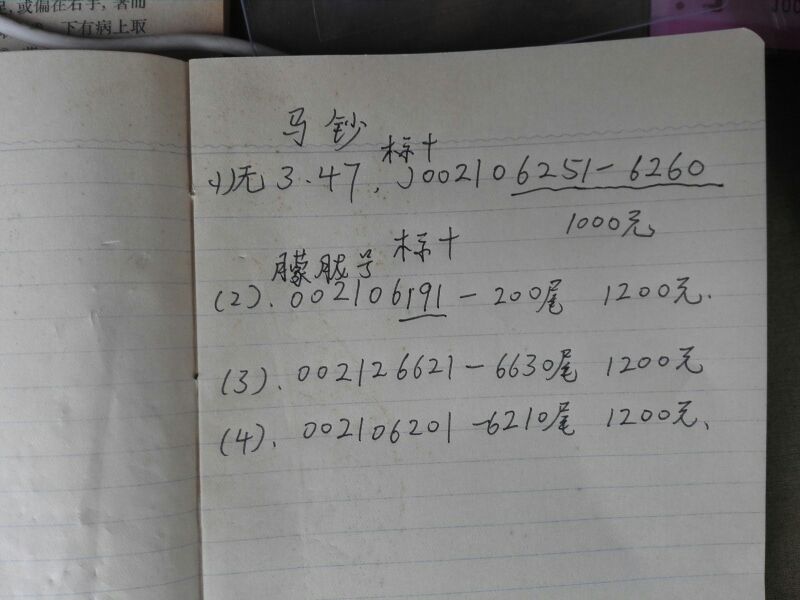 足，或偏在右手，著而
下有病上取
马钞
标十
(1)无3.47，J002106251-6260
1000元
朦胧号 标十
(2).002106191-200尾 1200元.
(3).002126621-6630尾 1200元
(4).002106201-6210尾 1200元、